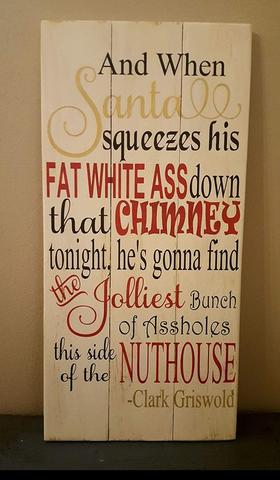 And When
Santa
squeezes his
FAT WHITE ASS down
that CHIMNEY
tonight, he's gonna find
the Jolliest Bunch
of Assholes
this side
of the NUTHOUSE
-Clark Griswold